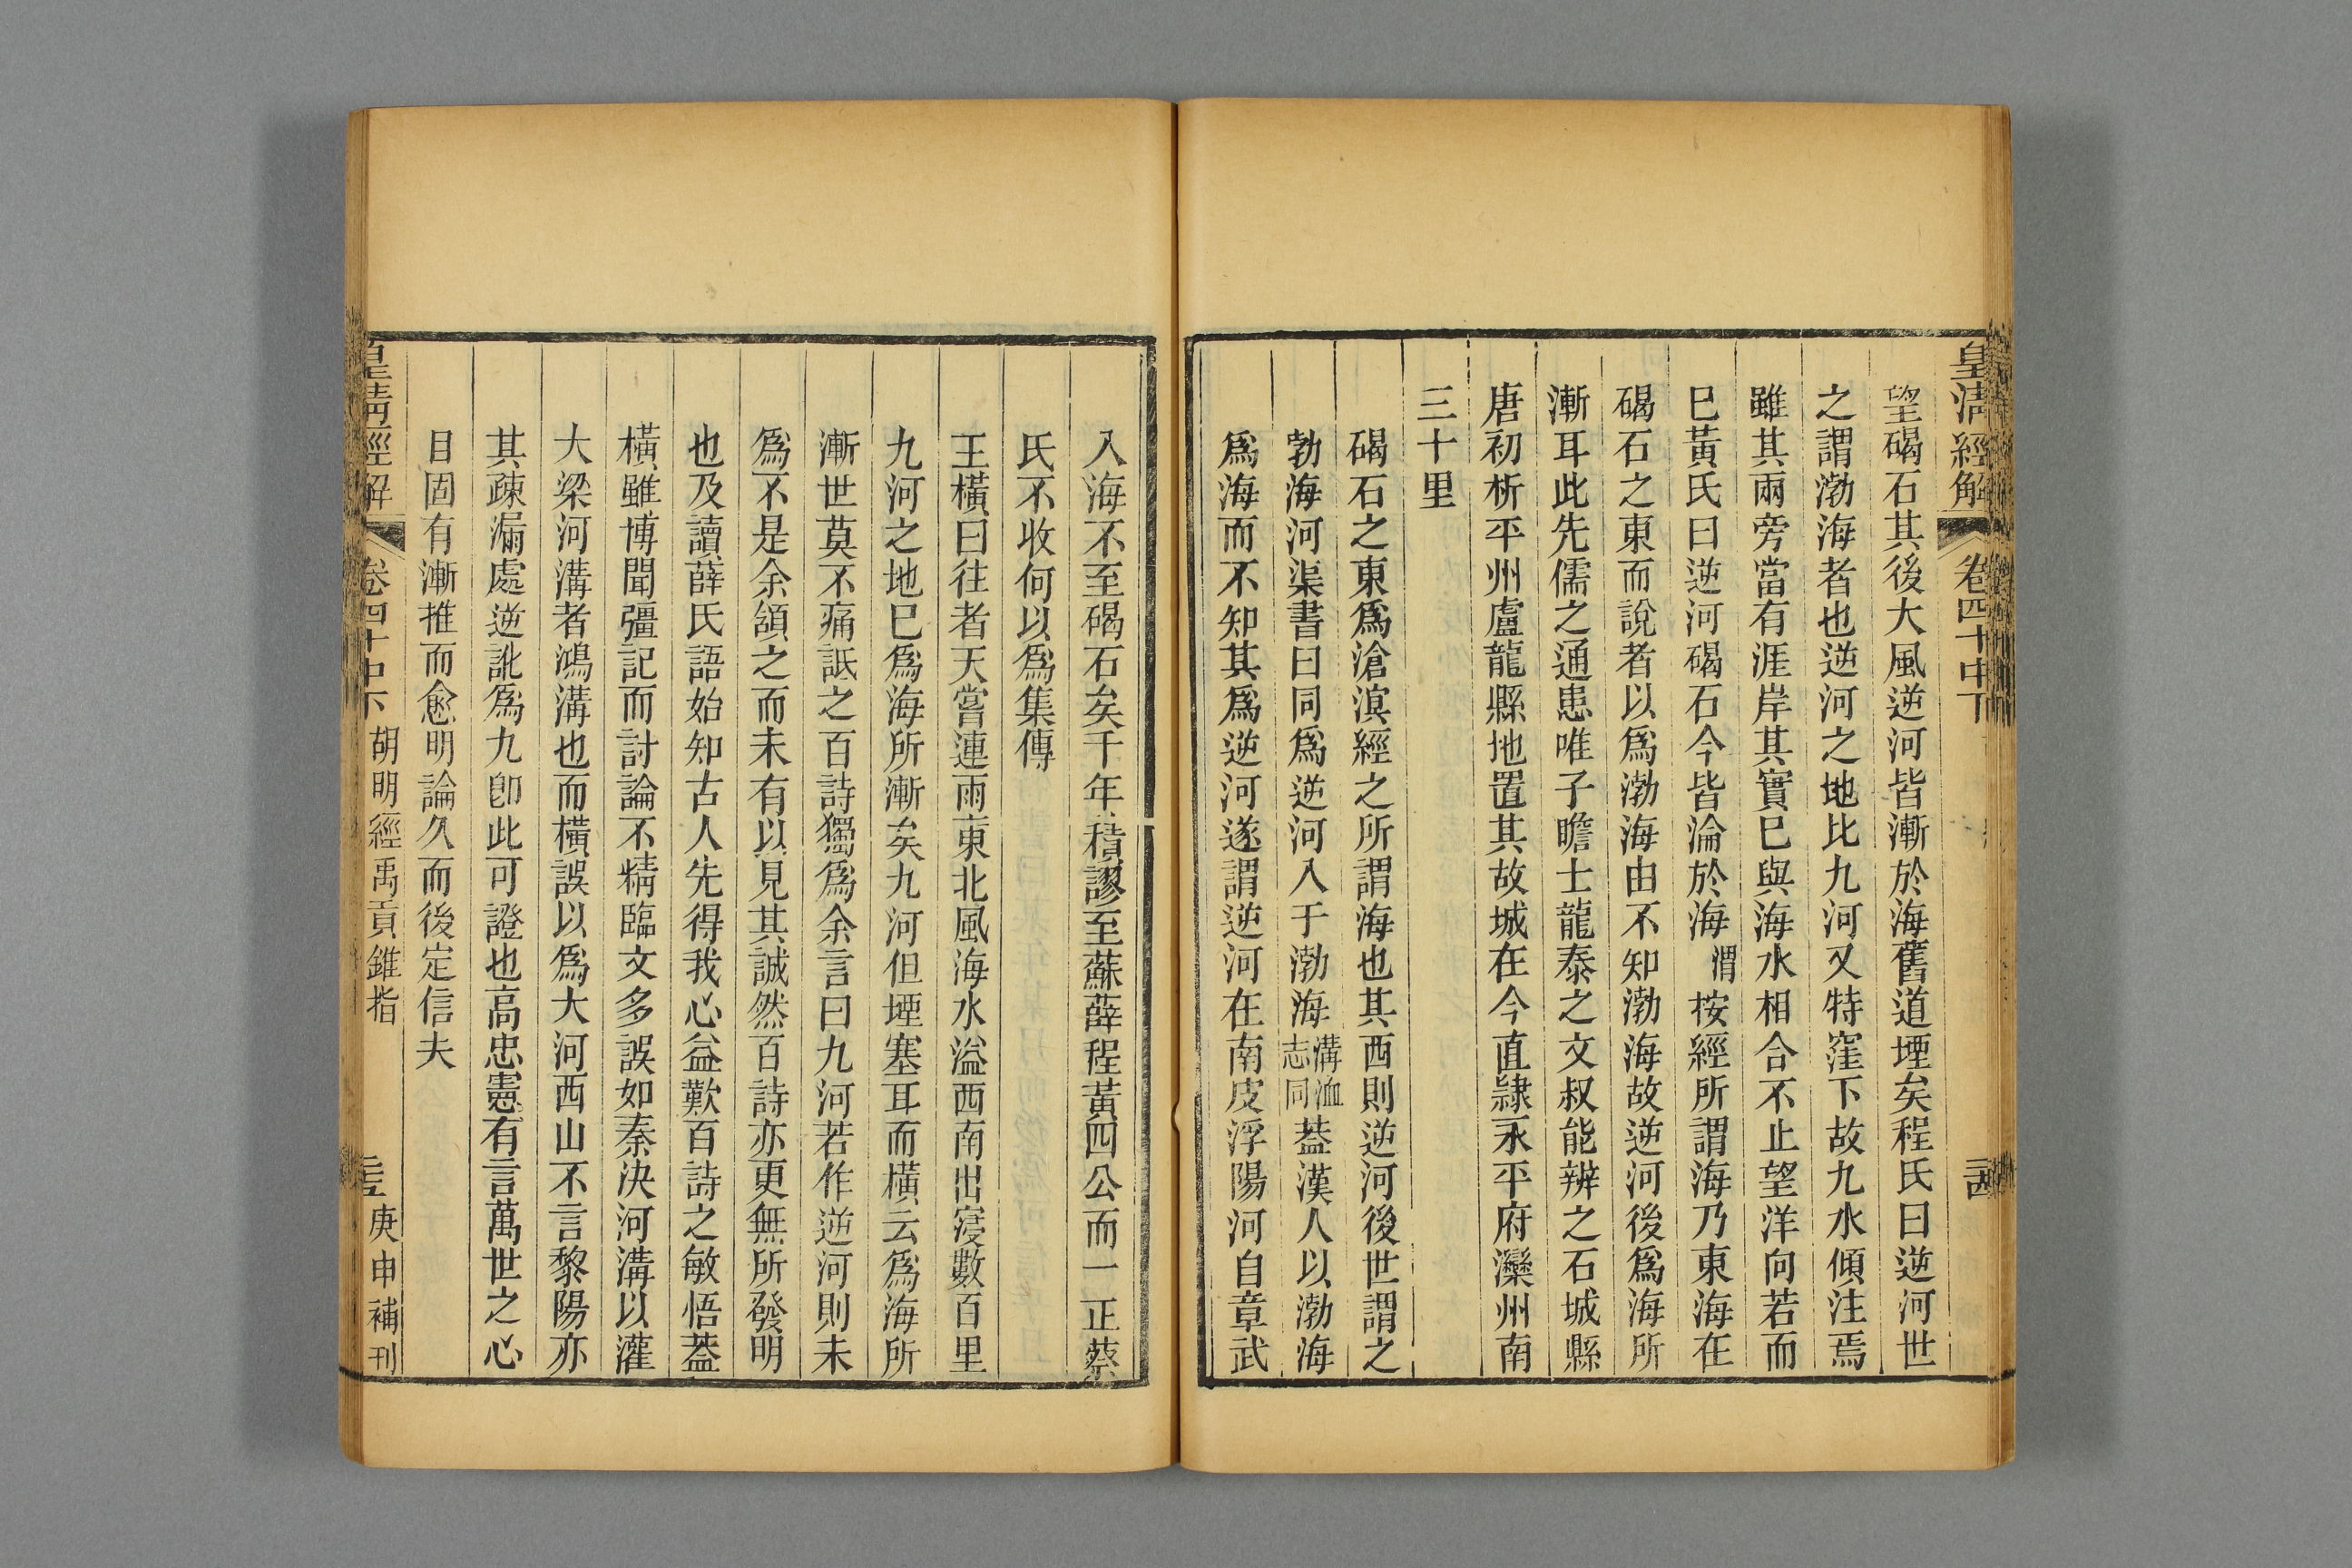 皇清經解 卷四十中下 二十四
望碣石其後大風逆河皆漸於海舊道堙矣程氏曰逆河世
之謂渤海者也逆河之地比九河又特窪下故九水傾注焉
雖其兩旁當有涯岸其實已與海水相合不止望洋向若而
巳黃氏曰逆河碣石今皆淪於海 渭按經所謂海乃東海在
碣石之東而說者以爲渤海由不知渤海故逆河後爲海所
漸耳此先儒之通患唯子瞻士龍泰之文叔能辨之石城縣
唐初析平州盧龍縣地置其故城在今直隸永平府灤州南
三十里
碣石之東爲滄溟經之所謂海也其西則逆河後世謂之
勃海河渠書曰同爲逆河入于渤海溝洫志同葢漢人以渤海
爲海而不知其爲逆河遂謂逆河在南皮浮陽河自章武
入海不至碣石矣千年積謬至蘇薛程黃四公而一正蔡
氏不收何以爲集傳
王橫曰往者天嘗連雨東北風海水溢西南出寖數百里
九河之地巳爲海所漸矣九河但堙塞耳而橫云爲海所
漸世莫不痛詆之百詩獨爲余言曰九河若作逆河則未
爲不是余頷之而未有以見其誠然百詩亦更無所發明
也及讀薛氏語始知古人先得我心益歎百詩之敏悟葢
橫雖博聞彊記而討論不精臨文多誤如秦決河溝以灌
大梁河溝者鴻溝也而橫誤以爲大河西山不言黎陽亦
其疎漏處逆訛爲九卽此可證也高忠憲有言萬世之心
目固有漸推而愈明論久而後定信夫
皇清經解 卷四十中下 胡明經禹貢錐指 二十五 庚申補刊